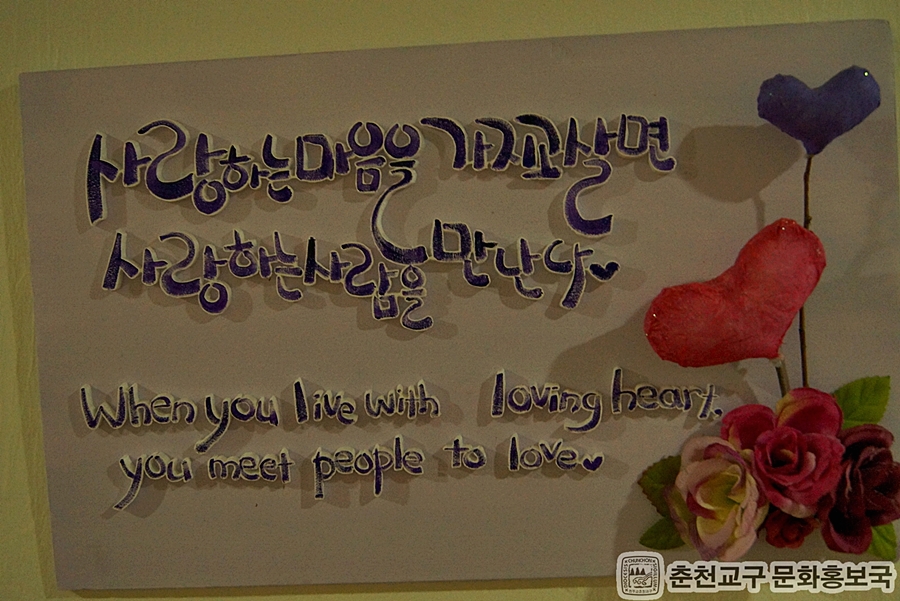 사랑하는 마음을 가지고 살면
사랑하는 사람을 만난다♥
When you live with loving heart,
you meet people to love♥
춘천교구 문화홍보국